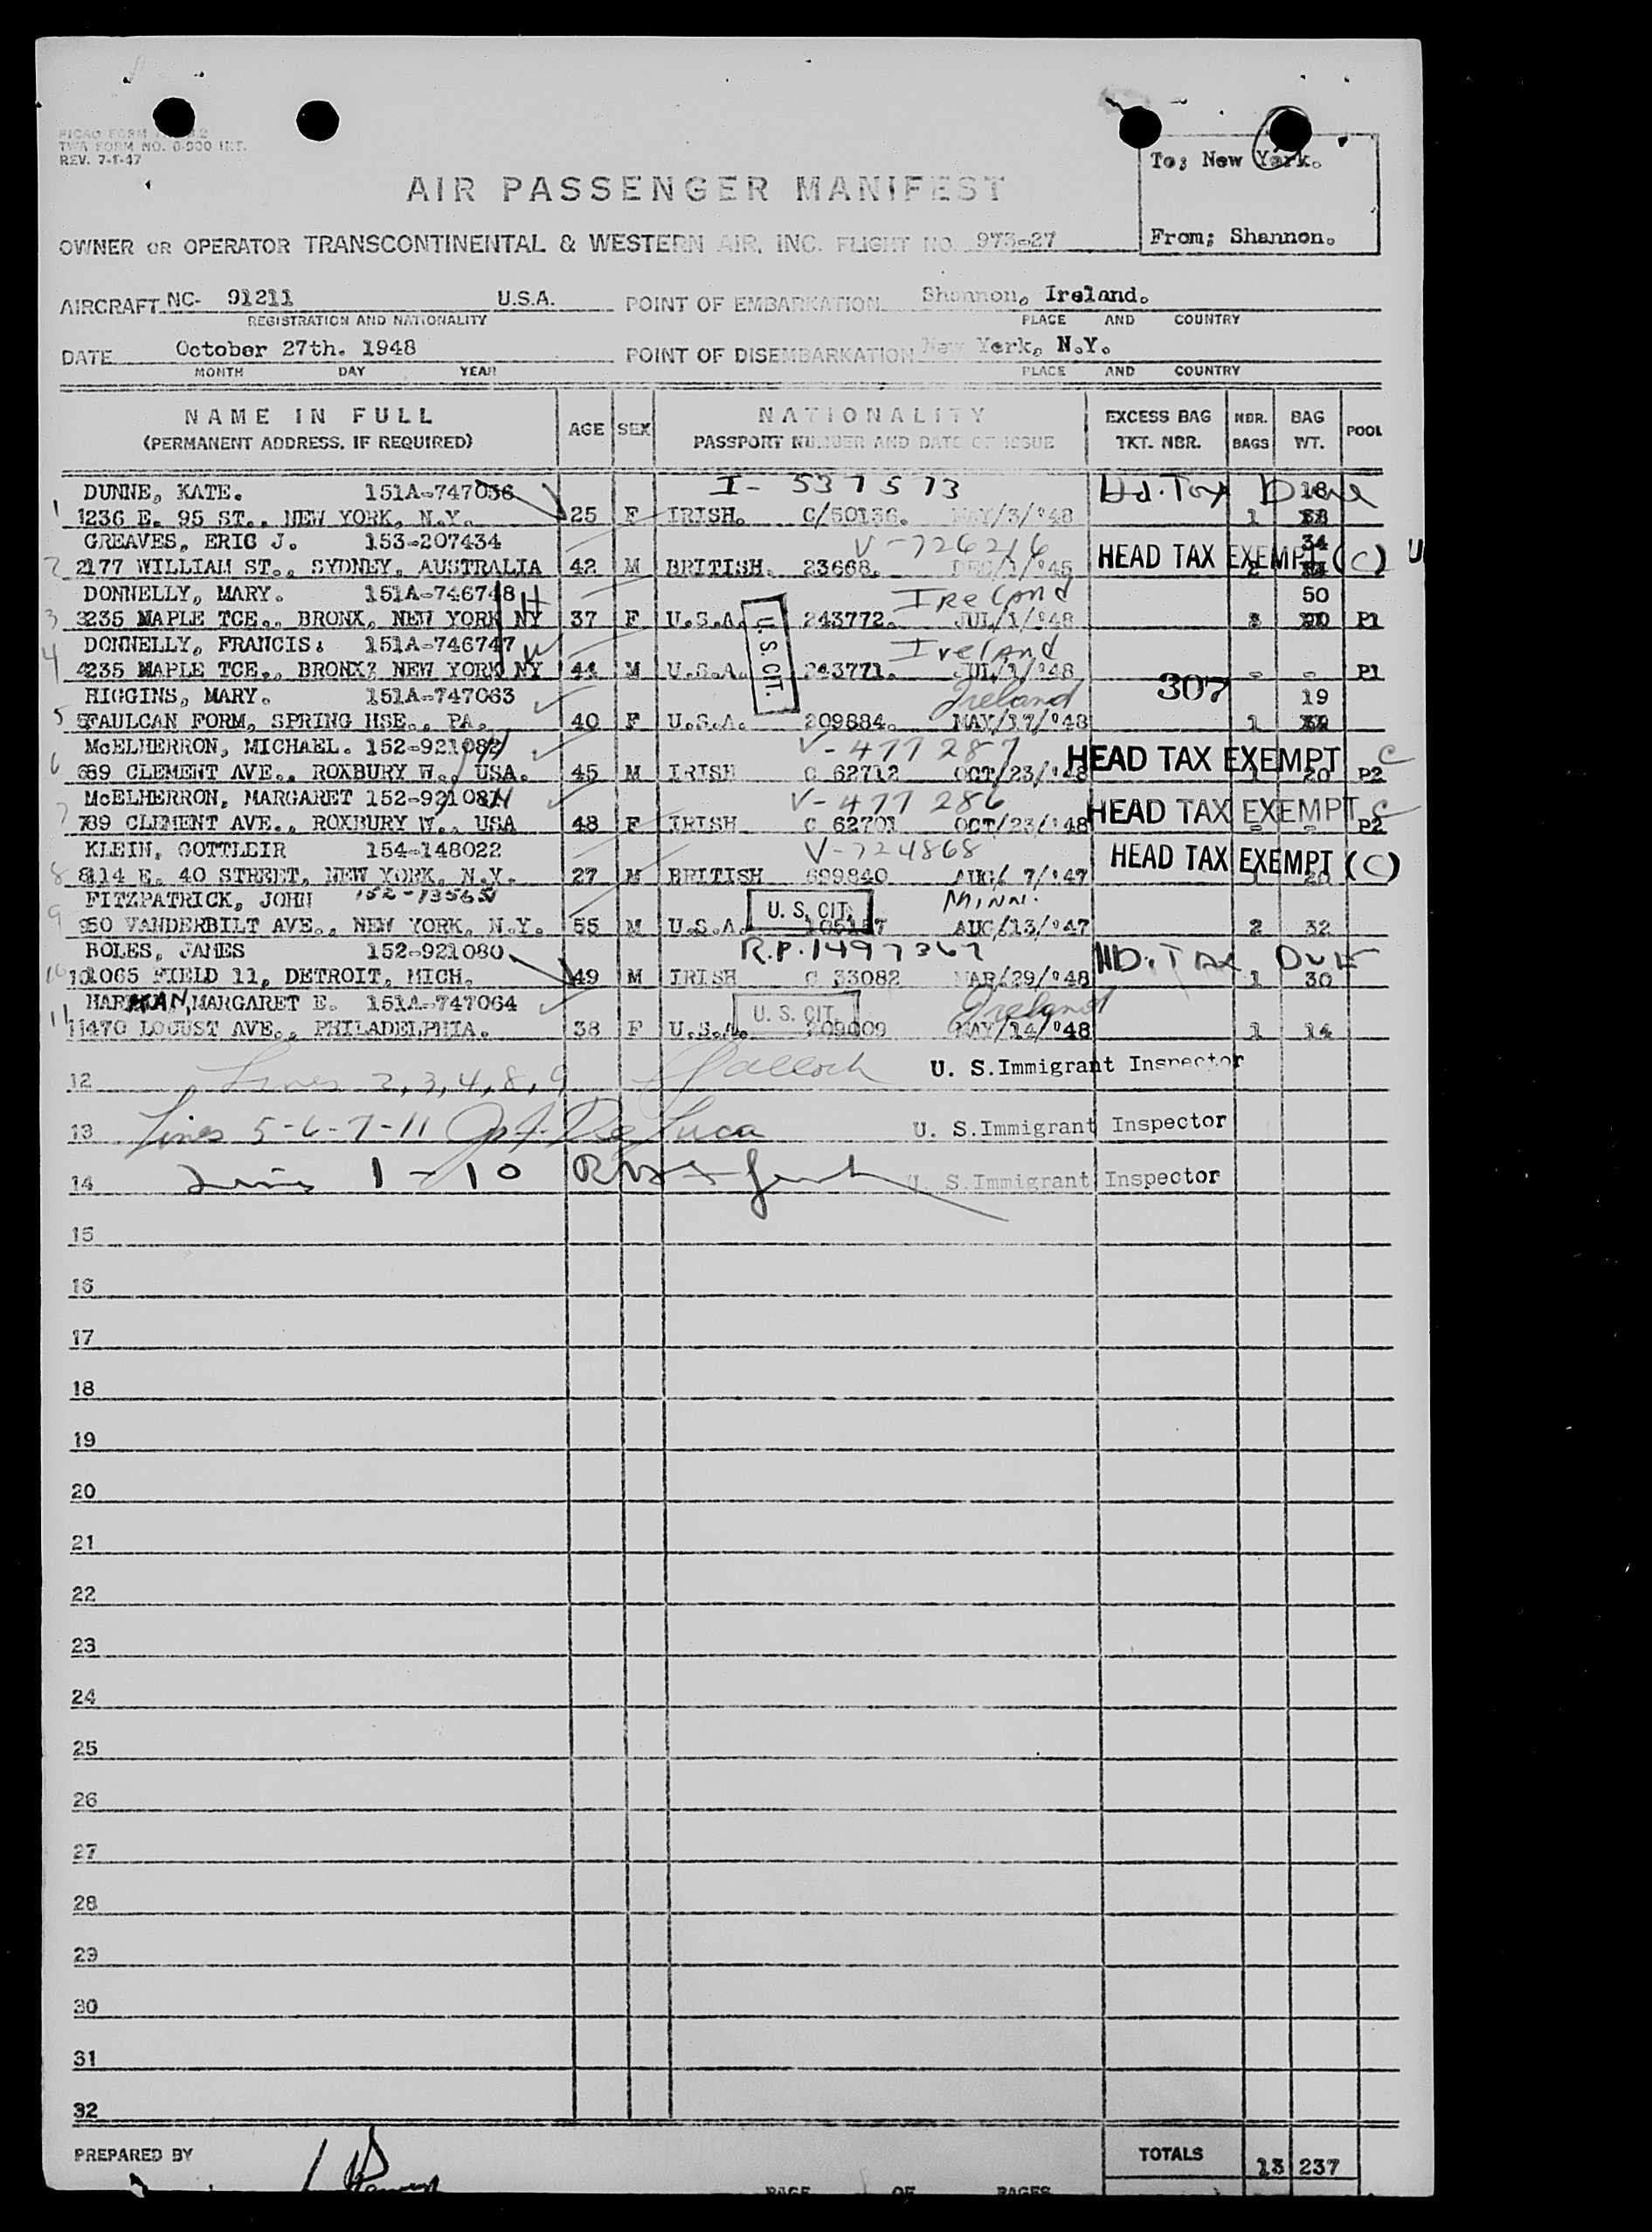 TWA FORM NO. 0-900 INT.
REV. 7-1-47
To; New York.
From; Shannon.
AIR PASSENGER MANIFEST
OWNER OR OPERATOR TRANSCONTINENTAL & WESTERN AIR, INC. FLIGHT NO. 973-27
AIRCRAFT NC- 91211 U.S.A. POINT OF EMBARKATION Shannon, Ireland.
REGISTRATION AND NATIONALITY PLACE AND COUNTRY
DATE October 27th. 1948 POINT OF DISEMBARKATION New York, N.Y.
MONTH DAY YEAR PLACE AND COUNTRY
NAME IN FULL AGE SEX NATIONALITY EXCESS BAG NBR. BAG POOL
(PERMANENT ADDRESS, IF REQUIRED) PASSPORT NUMBER AND DATE OF ISSUE TKT. NBR. BAGS WT.
DUNNE, KATE. 151A-747036 I- 537573 Hd. Tax Due 18
1 1236 E. 95 ST., NEW YORK, N.Y. 25 F IRISH. C/50136. MAY/3/'48 1
GREAVES, ERIC J. 153-207434 V-726216 34
2 2177 WILLIAM ST., SYDNEY, AUSTRALIA 42 M BRITISH. 23668. DEC/1/'45 HEAD TAX EXEMPT (C) 2
DONNELLY, MARY. 151A-746748 Ireland 50
3 3235 MAPLE TCE., BRONX, NEW YORK NY 37 F U.S.A. U.S. CIT. 243772. JUL/1/'48 3 P1
DONNELLY, FRANCIS: 151A-746747 Ireland
4 4235 MAPLE TCE., BRONX? NEW YORK NY 44 M U.S.A. 243771. JUL/1/'48 - - P1
HIGGINS, MARY. 151A-747063 Ireland 307 19
5 5FAULCAN FORM, SPRING HSE., PA. 40 F U.S.A. 209884. MAY/17/'48 1
McELHERRON, MICHAEL. 152-921082 V-477287 HEAD TAX EXEMPT C
6 689 CLEMENT AVE., ROXBURY W., USA. 45 M IRISH C 62712 OCT/23/'48 1 20 P2
McELHERRON, MARGARET 152-921081 V-477286 HEAD TAX EXEMPT C
7 789 CLEMENT AVE., ROXBURY W., USA 48 F IRISH C 62701 OCT/23/'48 - - P2
KLEIN, GOTTLEIR 154-148022 V-724868 HEAD TAX EXEMPT (C)
8 8114 E. 40 STREET, NEW YORK, N.Y. 27 M BRITISH 699840 AUG/ 7/'47 1 20
FITZPATRICK, JOHN U. S. CIT. MINN.
9 950 VANDERBILT AVE., NEW YORK, N.Y. 55 M U.S.A. AUG/13/'47 2 32
BOLES, JAMES 152-921080. R.P. 1497367 HD. TAX DUE
10 101065 FIELD 11, DETROIT, MICH. 49 M IRISH C 33082 MAR/29/'48 1 30
HARKAN, MARGARET E. 151A-747064 U. S. CIT. Ireland
11 11470 LOCUST AVE., PHILADELPHIA. 38 F U.S.A. 209009 MAY/14/'48 1 14
12 Lines 2, 3, 4, 8, 9 U. S.Immigrant Inspector
13 Lines 5-6-7-11 De Luca U. S.Immigrant Inspector
14 Lines 1-10 U. S.Immigrant Inspector
15
16
17
18
19
20
21
22
23
24
25
26
27
28
29
30
31
32
PREPARED BY TOTALS 13 237
PAGE OF PAGES